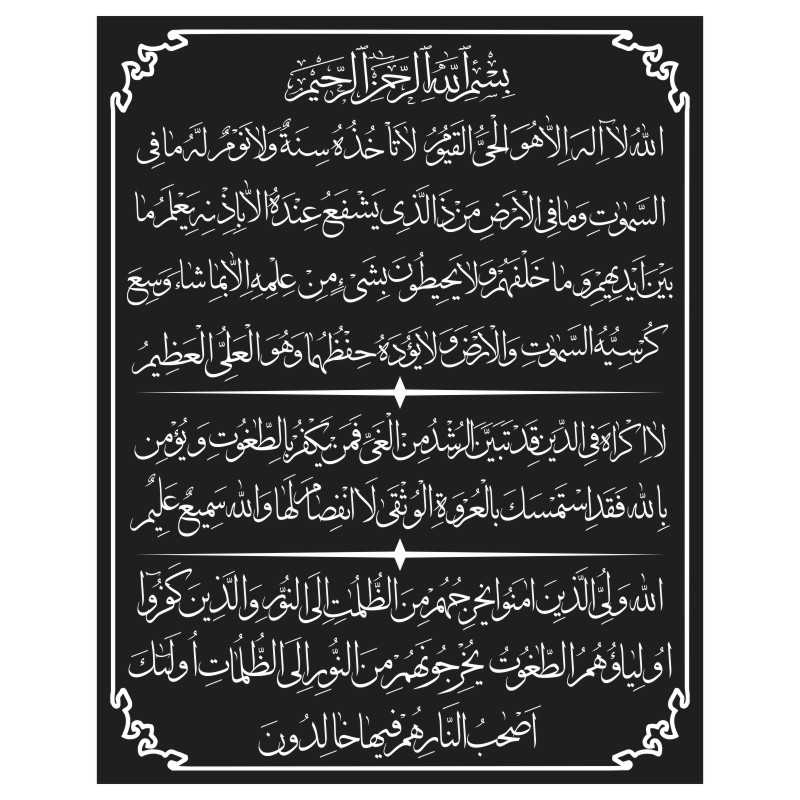 بِسْمِ اللّٰهِ الرَّحْمٰنِ الرَّحِيْمِ
اَللّٰهُ لَاۤ اِلٰهَ اِلَّا هُوَ الْحَيُّ الْقَيُّوْمُ لَا تَاْخُذُهٗ سِنَةٌ وَّلَا نَوْمٌ لَهٗ مَا فِى
السَّمٰوٰتِ وَمَا فِى الْاَرْضِ مَنْ ذَا الَّذِىْ يَشْفَعُ عِنْدَهٗ اِلَّا بِاِذْنِهٖ يَعْلَمُ مَا
بَيْنَ اَيْدِيْهِمْ وَمَا خَلْفَهُمْ وَلَا يُحِيْطُوْنَ بِشَىْءٍ مِّنْ عِلْمِهٖ اِلَّا بِمَا شَاءَ وَسِعَ
كُرْسِيُّهُ السَّمٰوٰتِ وَالْاَرْضَ وَلَا يَؤُدُهٗ حِفْظُهُمَا وَهُوَ الْعَلِىُّ الْعَظِيْمُ
لَا اِكْرَاهَ فِى الدِّيْنِ قَدْ تَبَيَّنَ الرُّشْدُ مِنَ الْغَىِّ فَمَنْ يَّكْفُرْ بِالطَّاغُوْتِ وَيُؤْمِنْ
بِاللّٰهِ فَقَدِ اسْتَمْسَكَ بِالْعُرْوَةِ الْوُثْقٰى لَا انْفِصَامَ لَهَا وَاللّٰهُ سَمِيْعٌ عَلِيْمٌ
اَللّٰهُ وَلِىُّ الَّذِيْنَ اٰمَنُوْا يُخْرِجُهُمْ مِنَ الظُّلُمٰتِ اِلَى النُّوْرِ وَالَّذِيْنَ كَفَرُوْۤا
اَوْلِيَاؤُهُمُ الطَّاغُوْتُ يُخْرِجُوْنَهُمْ مِنَ النُّوْرِ اِلَى الظُّلُمَاتِ اُولٰئِكَ
اَصْحٰبُ النَّارِ هُمْ فِيْهَا خَالِدُوْنَ